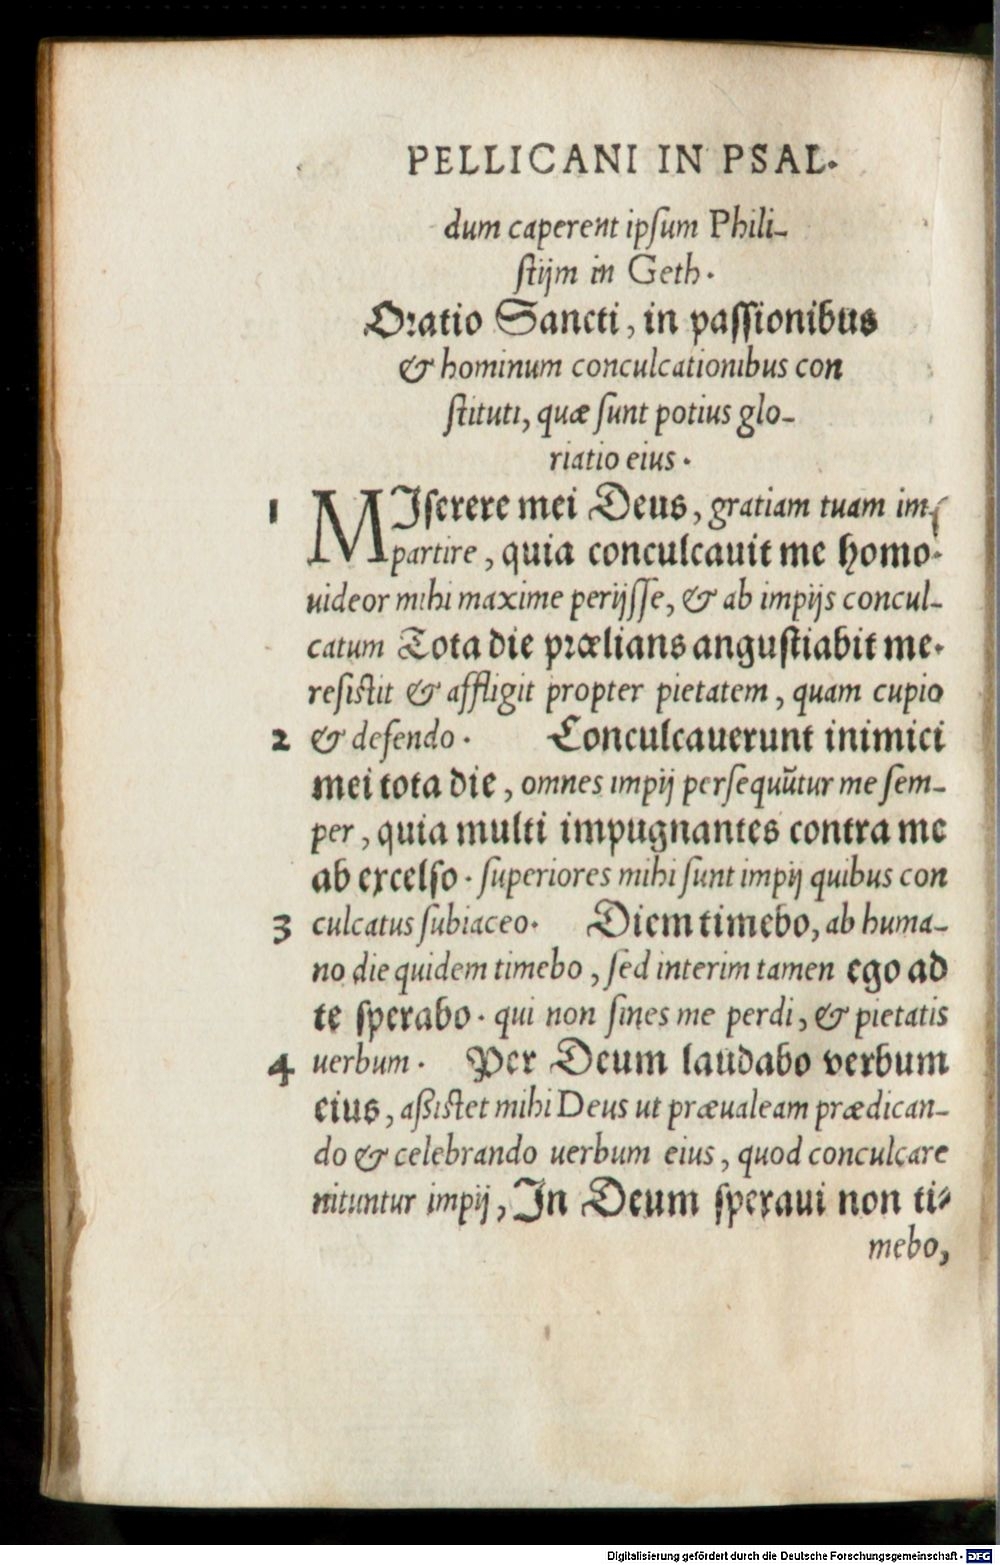 PELLICANI IN PSAL.
dum caperent ipſum Phili-
ſtijm in Geth.
Oratio Sancti, in paſſionibus
& hominum conculcationibus con
ſtituti, quæ ſunt potius glo-
riatio eius.
1 MIſerere mei Deus, gratiam tuam im-
partire, quia conculcauit me homo.
uideor mihi maxime perijſſe, & ab impijs concul-
catum Tota die prælians anguſtiabit me.
reſiſtit & affligit propter pietatem, quam cupio
2 & defendo. Conculcauerunt inimici
mei tota die, omnes impij perſequūtur me ſem-
per, quia multi impugnantes contra me
ab excelſo. ſuperiores mihi ſunt impij quibus con
3 culcatus ſubiaceo. Diem timebo, ab huma-
no die quidem timebo, ſed interim tamen ego ad
te ſperabo. qui non ſines me perdi, & pietatis
4 uerbum. Per Deum laudabo verbum
eius, aßiſtet mihi Deus ut præualeam prædican-
do & celebrando uerbum eius, quod conculcare
nituntur impij, In Deum ſperaui non ti-
mebo,
Digitalisierung gefördert durch die Deutsche Forschungsgemeinschaft - DFG